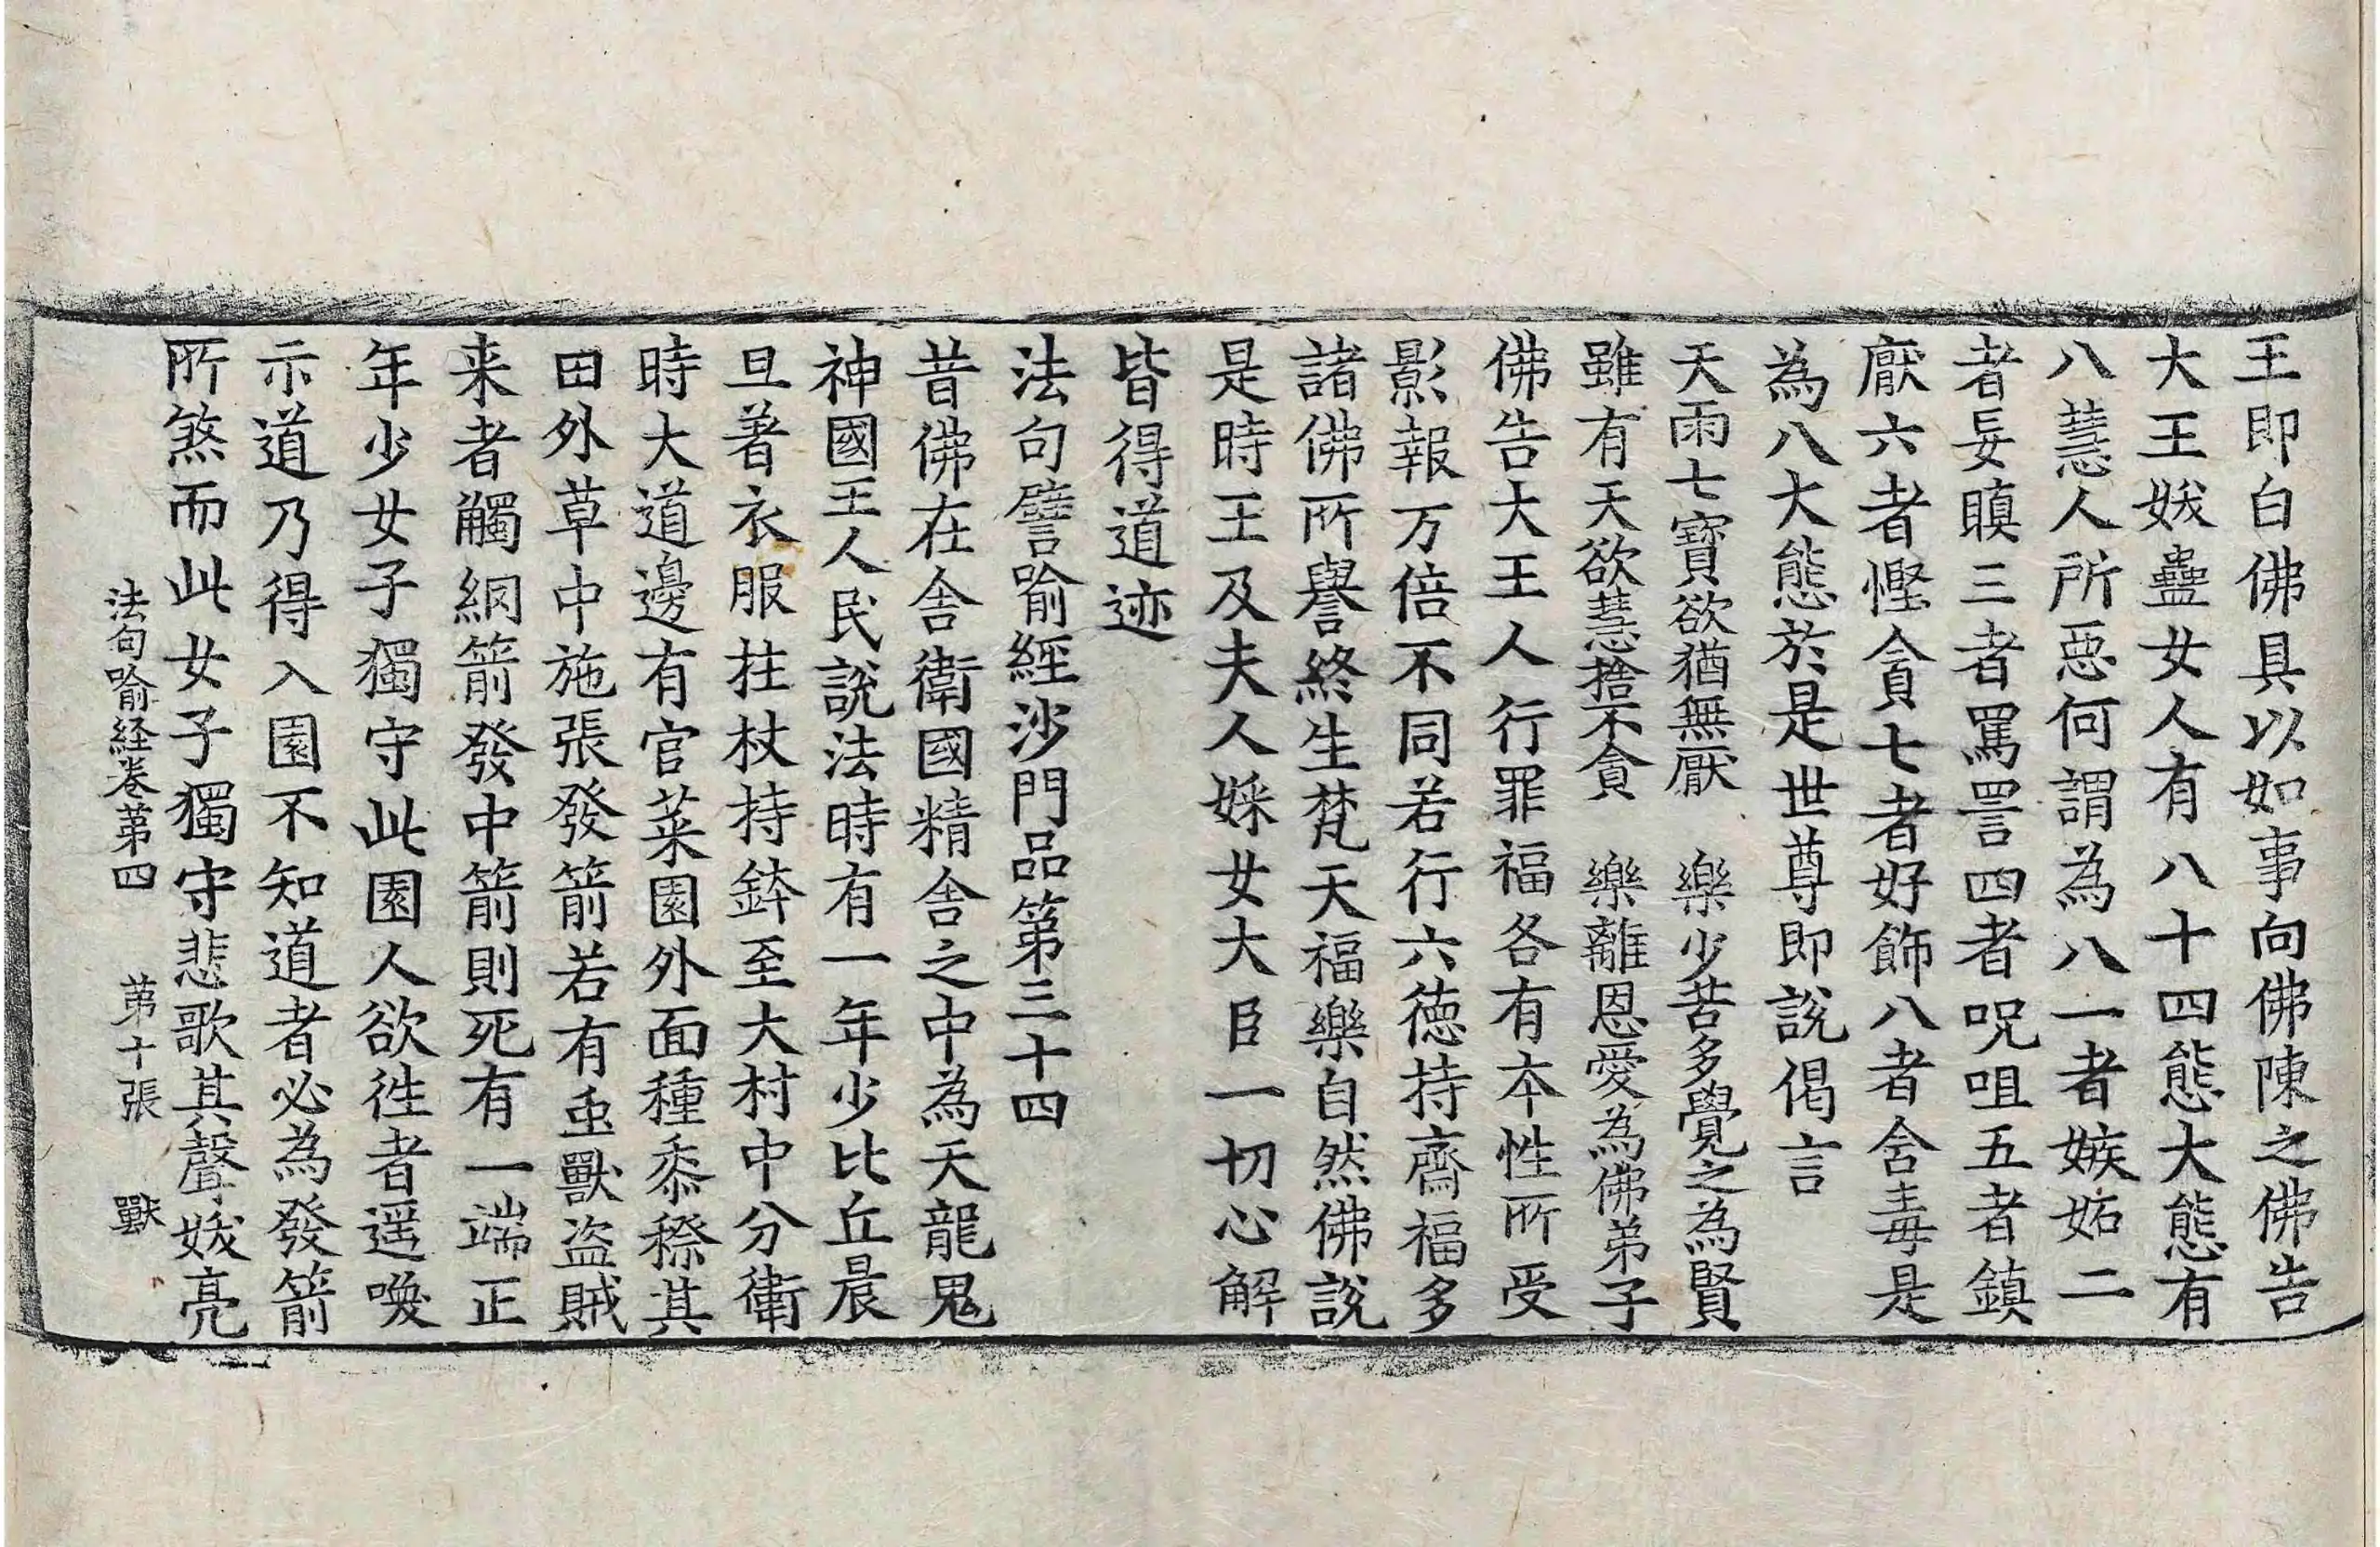 王即白佛具以如事向佛陳之佛告
大王妭蠱女人有八十四態大態有
八慧人所惡何謂為八一者嫉妬二
者妄瞋三者罵詈四者呪咀五者鎮
厭六者慳貪七者好飾八者含毒是
為八大態於是世尊即說偈言
天雨七寶欲猶無厭　樂少苦多覺之為賢
雖有天欲慧捨不貪　樂離恩愛為佛弟子
佛告大王人行罪福各有本性所受
影報万倍不同若行六德持齋福多
諸佛所譽終生梵天福樂自然佛說
是時王及夫人婇女大臣一切心解
皆得道迹
法句譬喻經沙門品第三十四
昔佛在舍衛國精舍之中為天龍鬼
神國王人民說法時有一年少比丘晨
旦著衣服拄杖持鉢至大村中分衛
時大道邊有官菜園外面種黍穄其
田外草中施張發箭若有虫獸盜賊
来者觸網箭發中箭則死有一端正
年少女子獨守此園人欲徃者遥喚
示道乃得入園不知道者必為發箭
所煞而此女子獨守悲歌其聲妭亮
法句喻経卷苐四　苐十張　獸